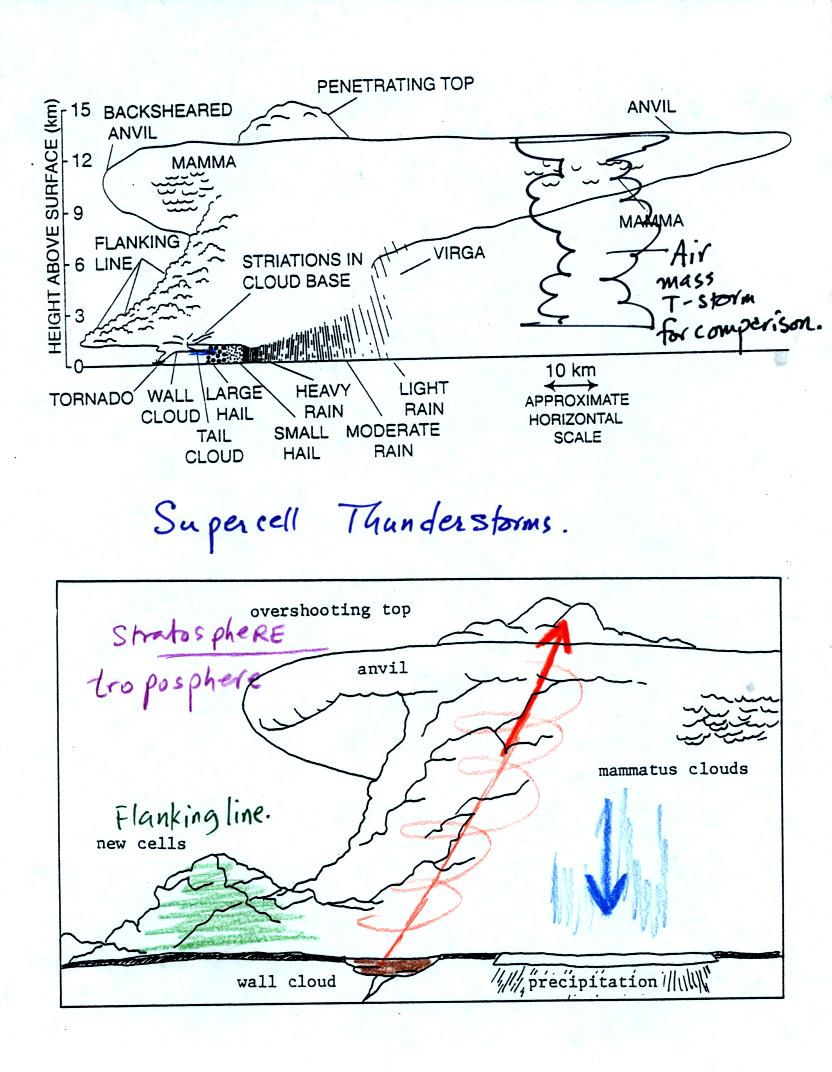 PENETRATING TOP
HEIGHT ABOVE SURFACE (km)
15
12
9
6
3
0
BACKSHEARED
ANVIL
ANVIL
MAMMA
MAMMA
FLANKING
LINE
STRIATIONS IN
CLOUD BASE
VIRGA
Air
mass
T-storm
for comparison.
TORNADO
WALL
CLOUD
TAIL
CLOUD
LARGE
HAIL
SMALL
HAIL
HEAVY
RAIN
MODERATE
RAIN
LIGHT
RAIN
10 km
APPROXIMATE
HORIZONTAL
SCALE
Supercell Thunderstorms.
overshooting top
StratospheRE
troposphere
anvil
mammatus clouds
Flanking line.
new cells
wall cloud
precipitation